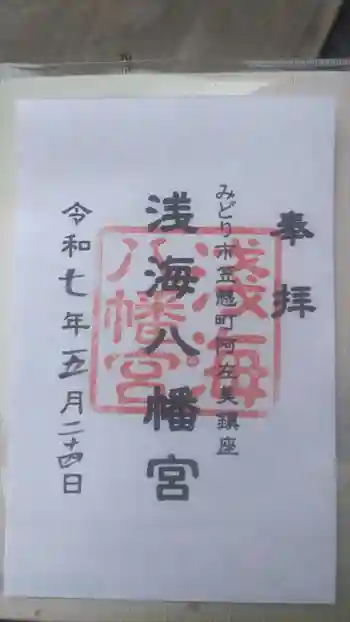 奉拝
みどり市笠懸町阿左美鎮座
浅海八幡宮
令和七年五月二十四日
淺海
八幡宮